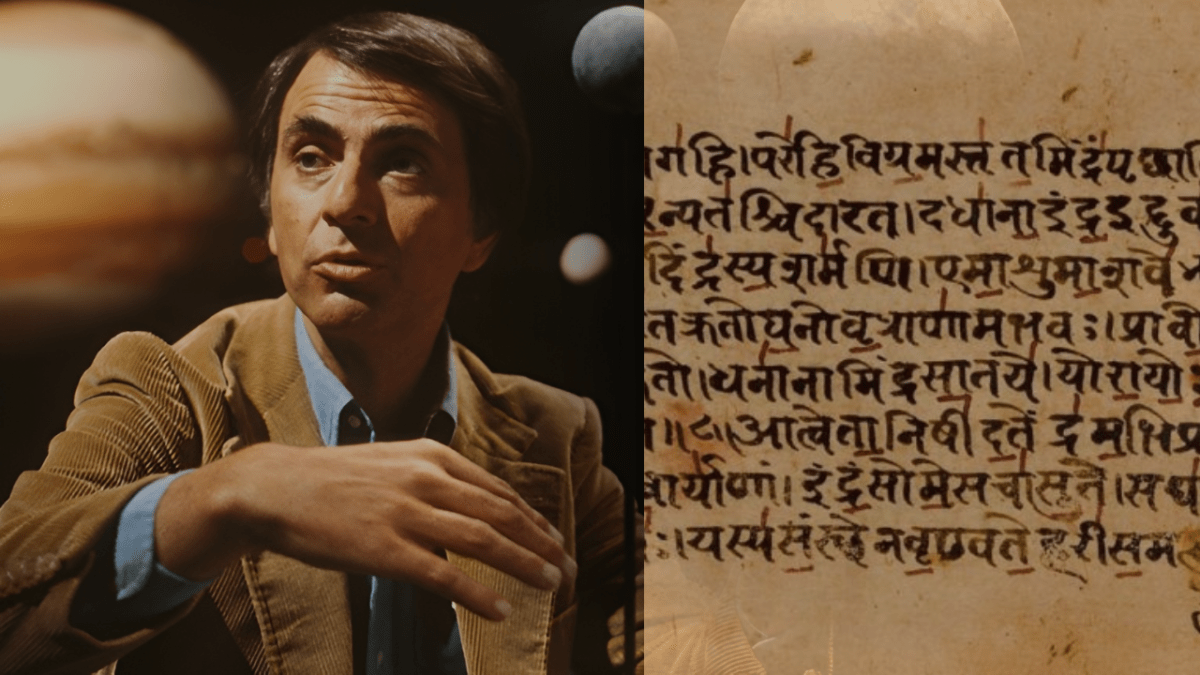 गहि।परेहिविग्रमस्तृतमिंद्रंपृछावि
रन्यतश्चिदारत।दधानाइंद्रइद्दुव
दिंद्रस्यशर्मणि।एमाशुमाशवे
तक्रतोघनोवृत्राणामभवः।प्रावो
तो।धनानामिंद्रसातये।योरायो
॥८॥आत्वेतानिषीदतेंद्रमभिप्र
वार्याणां।इंद्रंसोमेसचासुते।सघा
ः।यस्यसंस्थेनवृण्वतेहरीसम